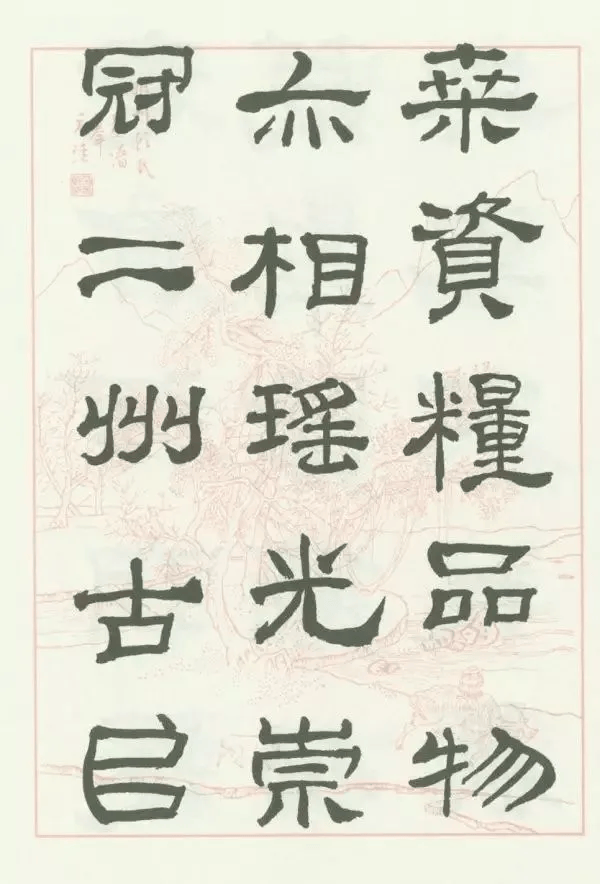 桒資糧品物
亦相瑶光崇
冠二州古曰